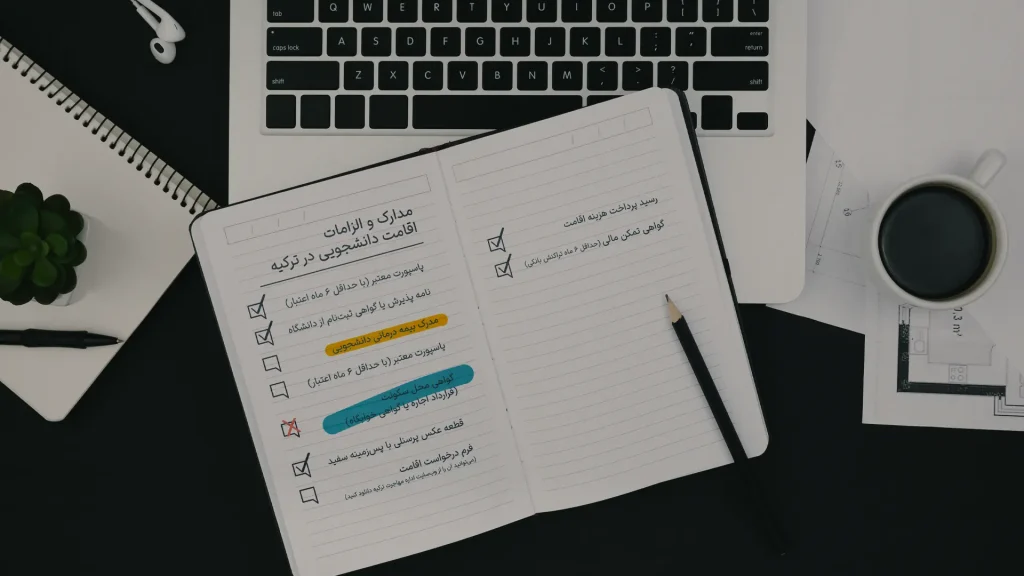 tab Q W E R T Y U I O P
caps lock A S D F G H J K L ; enter return
shift Z X C V B N M < > ? / shift
مدارک و الزامات
اقامت دانشجویی در ترکیه
پاسپورت معتبر (با حداقل ۶ ماه اعتبار)
نامه پذیرش یا گواهی ثبت‌نام از دانشگاه
مدرک بیمه درمانی دانشجویی
پاسپورت معتبر (با حداقل ۶ ماه اعتبار)
گواهی محل سکونت
(قرارداد اجاره یا گواهی خوابگاه)
قطعه عکس پرسنلی با پس‌زمینه سفید
فرم درخواست اقامت
(می‌توانید آن را از وب‌سایت اداره مهاجرت ترکیه دانلود کنید)
رسید پرداخت هزینه اقامت
گواهی تمکن مالی (حداقل ۶ ماه تراکنش بانکی)